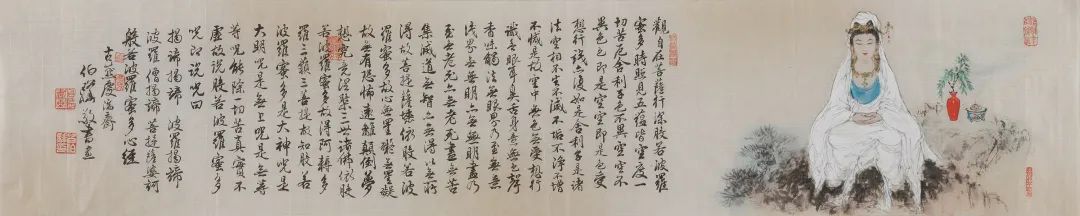 觀自在菩薩行深般若波羅
蜜多時照見五蘊皆空度一
切苦厄舍利子色不異空空不
異色色即是空空即是色受
想行識亦復如是舍利子是諸
法空相不生不滅不垢不淨不增
不減是故空中无色无受想行
識无眼耳鼻舌身意无色聲
香味觸法无眼界乃至无意
識界无无明亦无无明盡乃
至无老死亦无老死盡无苦
集滅道无智亦无得以无所
得故菩提薩埵依般若波
羅蜜多故心无罣礙无罣礙
故无有恐怖遠離顛倒夢
想究竟涅槃三世諸佛依般
若波羅蜜多故得阿耨多
羅三藐三菩提故知般若
波羅蜜多是大神咒是
大明咒是无上咒是无等
等咒能除一切苦真實不
虛故說般若波羅蜜多
咒即說咒曰
揭諦揭諦 波羅揭諦
波羅僧揭諦 菩提薩婆訶
般若波羅蜜多心經
敬書